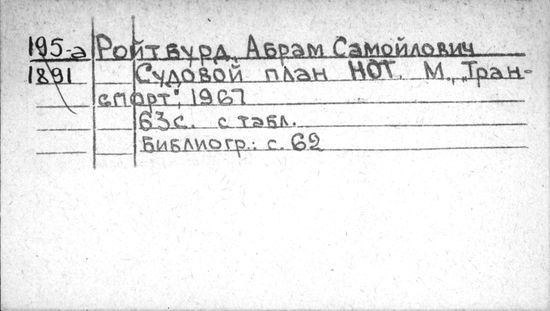 195-а Ройтбурд, Абрам Самойлович
1891 Судовой план НОТ. М., „Тран-
спорт", 1967
63с. с табл.
Библиогр.: с. 62